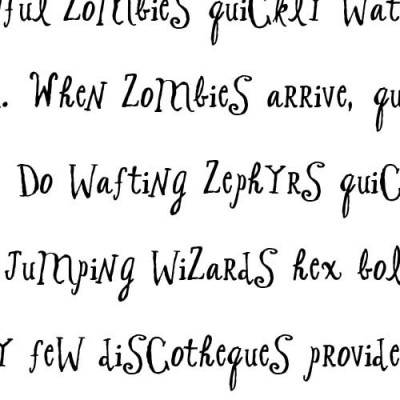 ful zombies quickly wat
. When zombies arrive, qu
Do wafting zephyrs quic
Jumping wizards hex bol
y few discotheques provide